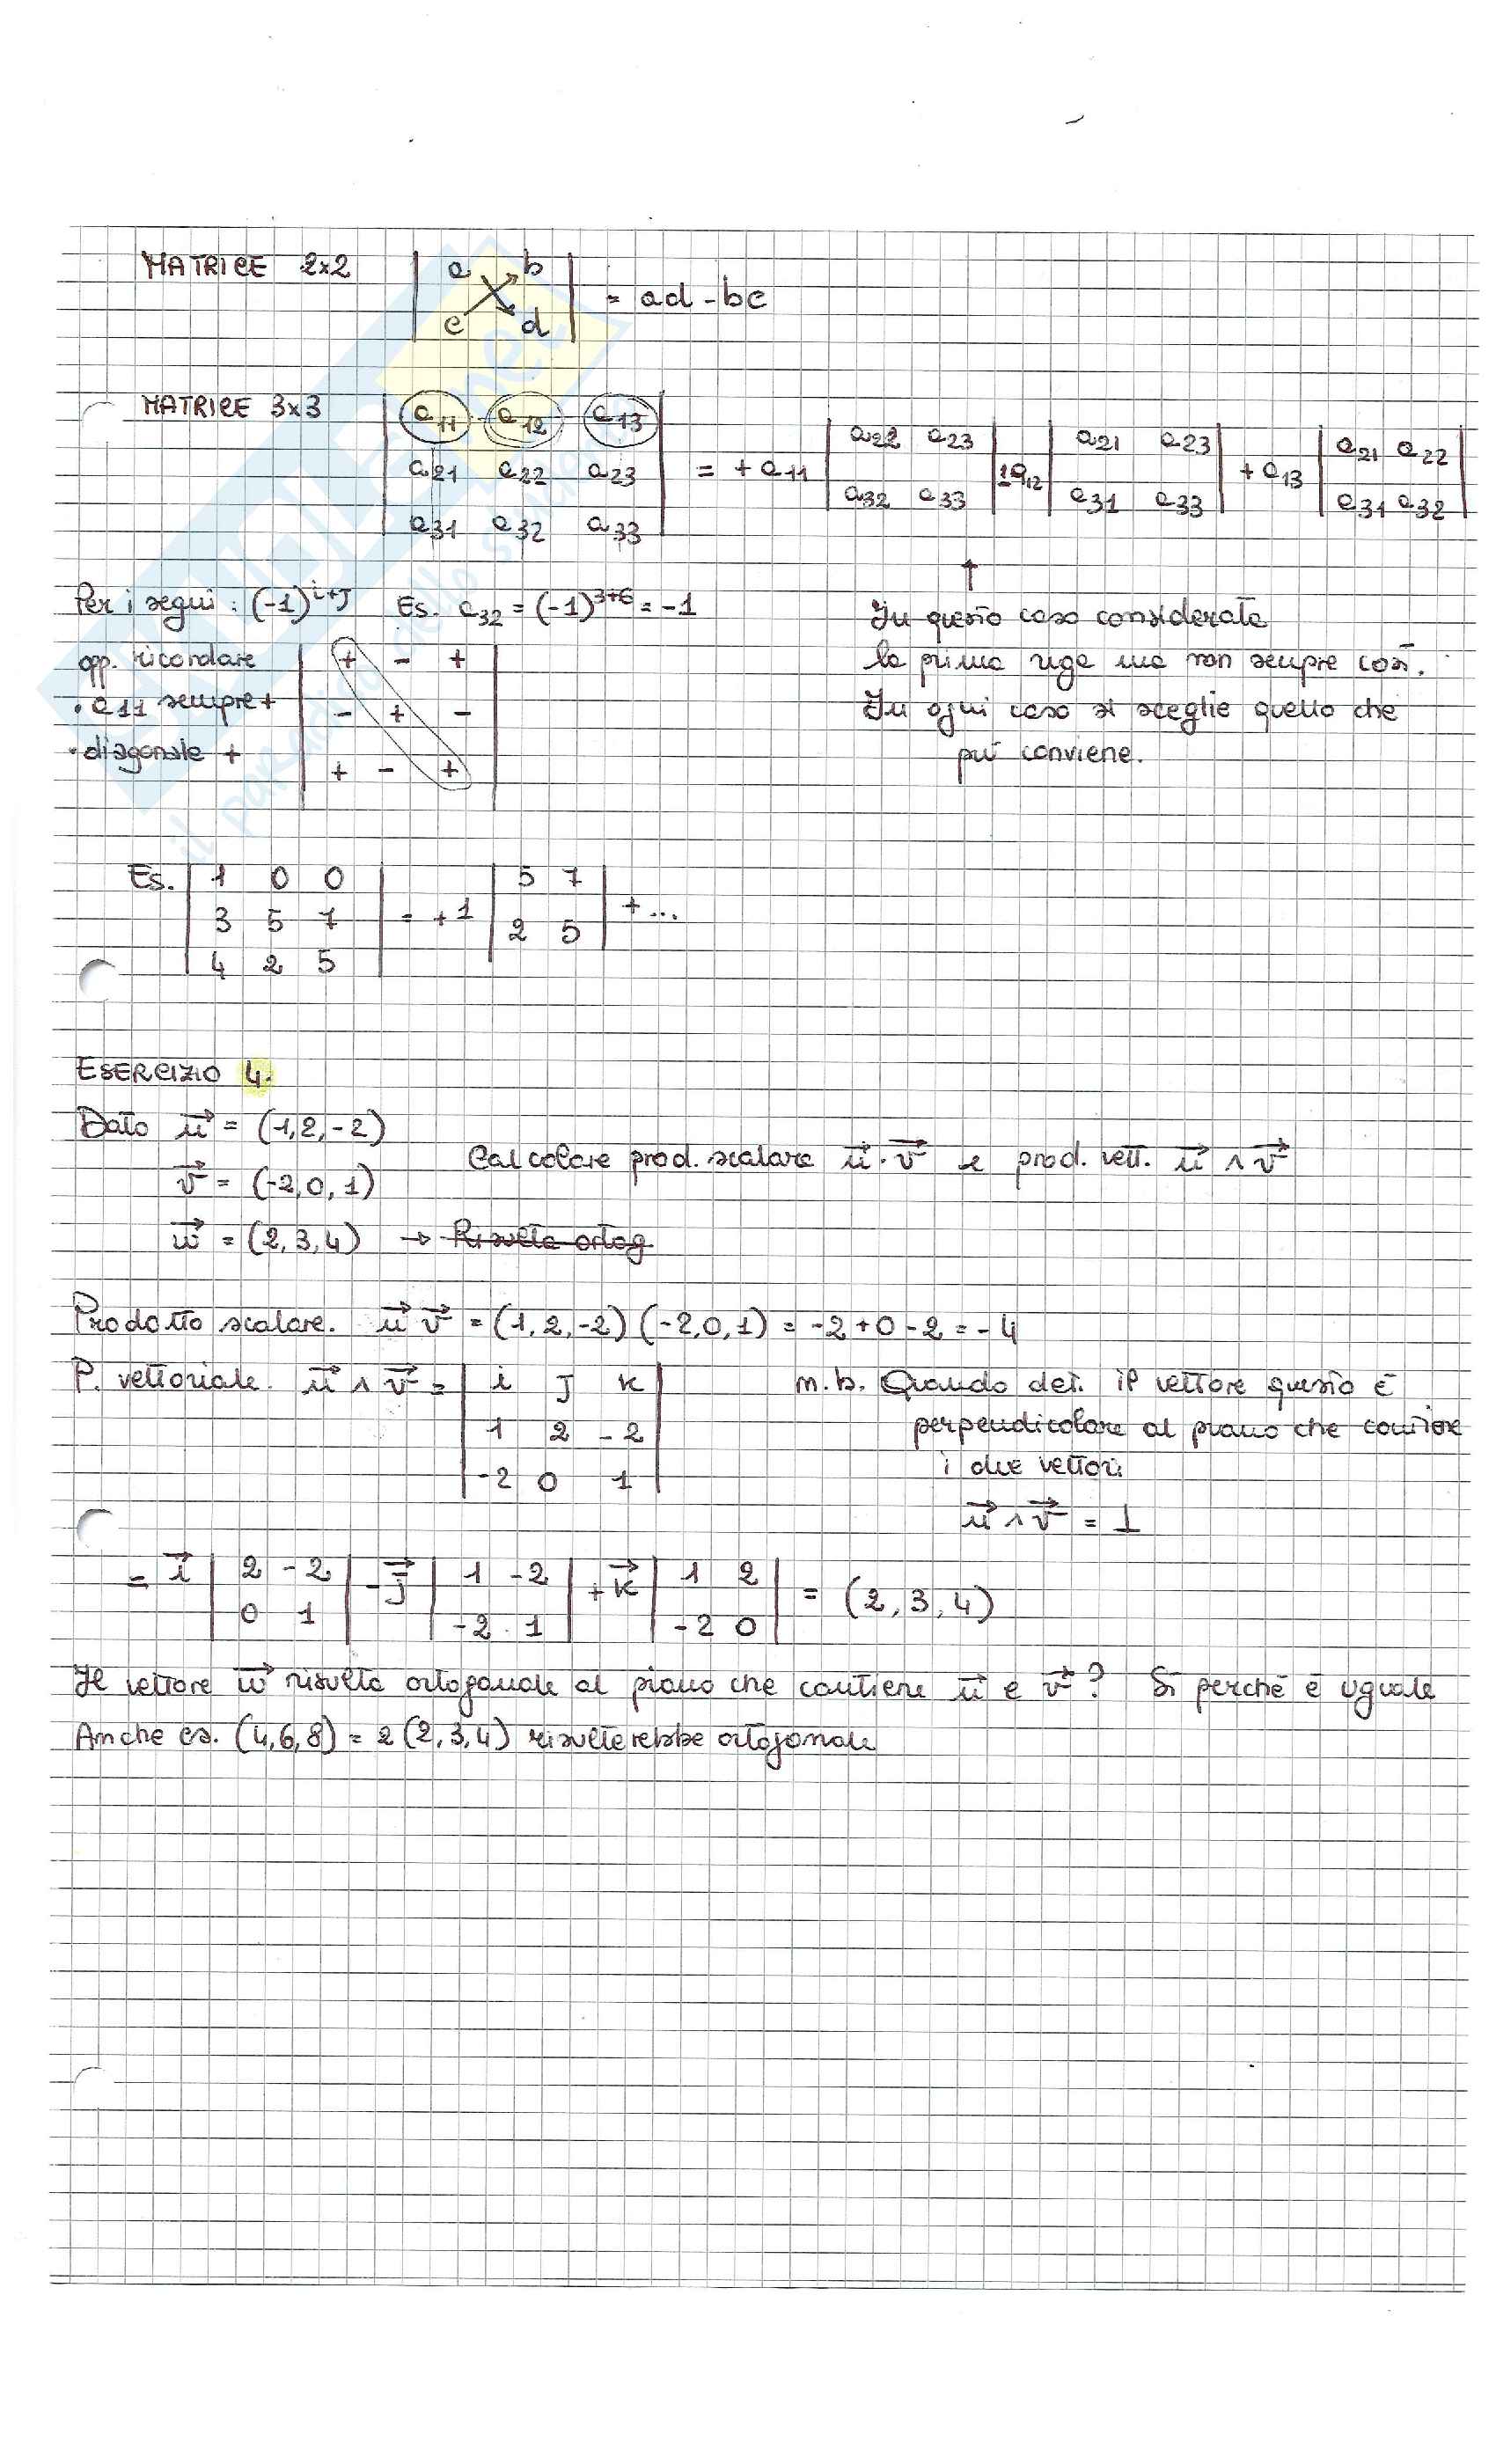 MATRICE 2x2 | a b | = ad - bc
| c d |
MATRICE 3x3 | a11 a12 a13 | = + a11 | a22 a23 | - a12 | a21 a23 | + a13 | a21 a22 |
| a21 a22 a23 | | a32 a33 | | a31 a33 | | a31 a32 |
| a31 a32 a33 |
↑
Per i segni : (-1)^i+J Es. a32 = (-1)^3+6 = -1
opp. ricordare | + - + |
• a11 sempre + | - + - |
• diagonale + | + - + |
In questo caso considerata
la prima riga ma non sempre così.
In ogni caso si sceglie quello che
più conviene.
Es. | 1 0 0 | = +1 | 5 7 | + ...
| 3 5 7 | | 2 5 |
| 4 2 5 |
ESERCIZIO 4.
Dato u→ = (1,2,-2)
v→ = (-2,0,1) Calcolare prod. scalare u→ · v→ e prod. vett. u→ ∧ v→
w→ = (2,3,4) → Risulta ortog
Prodotto scalare. u→ v→ = (1,2,-2) (-2,0,1) = -2+0-2 = -4
P. vettoriale. u→ ∧ v→ = | i J k |
| 1 2 -2 |
| -2 0 1 |
n.b. Quando det. il vettore questo è
perpendicolare al piano che contiene
i due vettori
u→ ∧ v→ = ⊥
= i→ | 2 -2 | - j→ | 1 -2 | + k→ | 1 2 | = (2,3,4)
| 0 1 | | -2 1 | | -2 0 |
Il vettore w→ risulta ortogonale al piano che contiene u→ e v→? Sì perché è uguale
Anche es. (4,6,8) = 2 (2,3,4) risulterebbe ortogonale